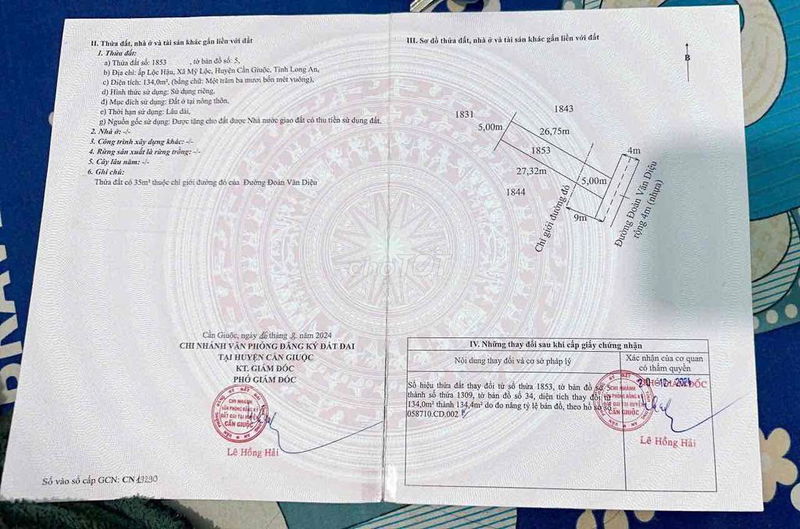 II. Thửa đất, nhà ở và tài sản khác gắn liền với đất
1. Thửa đất:
a) Thửa đất số: 1853 , tờ bản đồ số: 5,
b) Địa chỉ: ấp Lộc Hậu, Xã Mỹ Lộc, Huyện Cần Giuộc, Tỉnh Long An,
c) Diện tích: 134,0m², (bằng chữ: Một trăm ba mươi bốn mét vuông),
d) Hình thức sử dụng: Sử dụng riêng,
đ) Mục đích sử dụng: Đất ở tại nông thôn,
e) Thời hạn sử dụng: Lâu dài,
g) Nguồn gốc sử dụng: Được tặng cho đất được Nhà nước giao đất có thu tiền sử dụng đất.
2. Nhà ở: -/-
3. Công trình xây dựng khác: -/-
4. Rừng sản xuất là rừng trồng: -/-
5. Cây lâu năm: -/-
6. Ghi chú:
Thửa đất có 35m² thuộc chỉ giới đường đỏ của Đường Đoàn Văn Diệu
Cần Giuộc, ngày tháng 2024
CHI NHÁNH VĂN PHÒNG ĐĂNG KÝ ĐẤT ĐAI
TẠI HUYỆN CẦN GIUỘC
KT. GIÁM ĐỐC
PHÓ GIÁM ĐỐC
CHI NHÁNH
VĂN PHÒNG ĐĂNG KÝ
ĐẤT ĐAI TẠI HUYỆN
CẦN GIUỘC
Lê Hồng Hải
Số vào sổ cấp GCN: CN
III. Sơ đồ thửa đất, nhà ở và tài sản khác gắn liền với đất
B
1831
1843
5,00m
26,75m
4m
1853
27,32m
5,00m
1844
9m
Chỉ giới đường đỏ
Đường Đoàn Văn Diệu
rộng 4m (nhựa)
choTOT
IV. Những thay đổi sau khi cấp giấy chứng nhận
Nội dung thay đổi và cơ sở pháp lý
Xác nhận của cơ quan
có thẩm quyền
Số hiệu thửa đất thay đổi từ số thửa 1853, tờ bản đồ số 5
thành số thửa 1309, tờ bản đồ số 34, diện tích thay đổi từ
134,0m² thành 134,4m² do đo nâng tỷ lệ bản đồ, theo hồ sơ số
058710.CD.002
Lê Hồng Hải